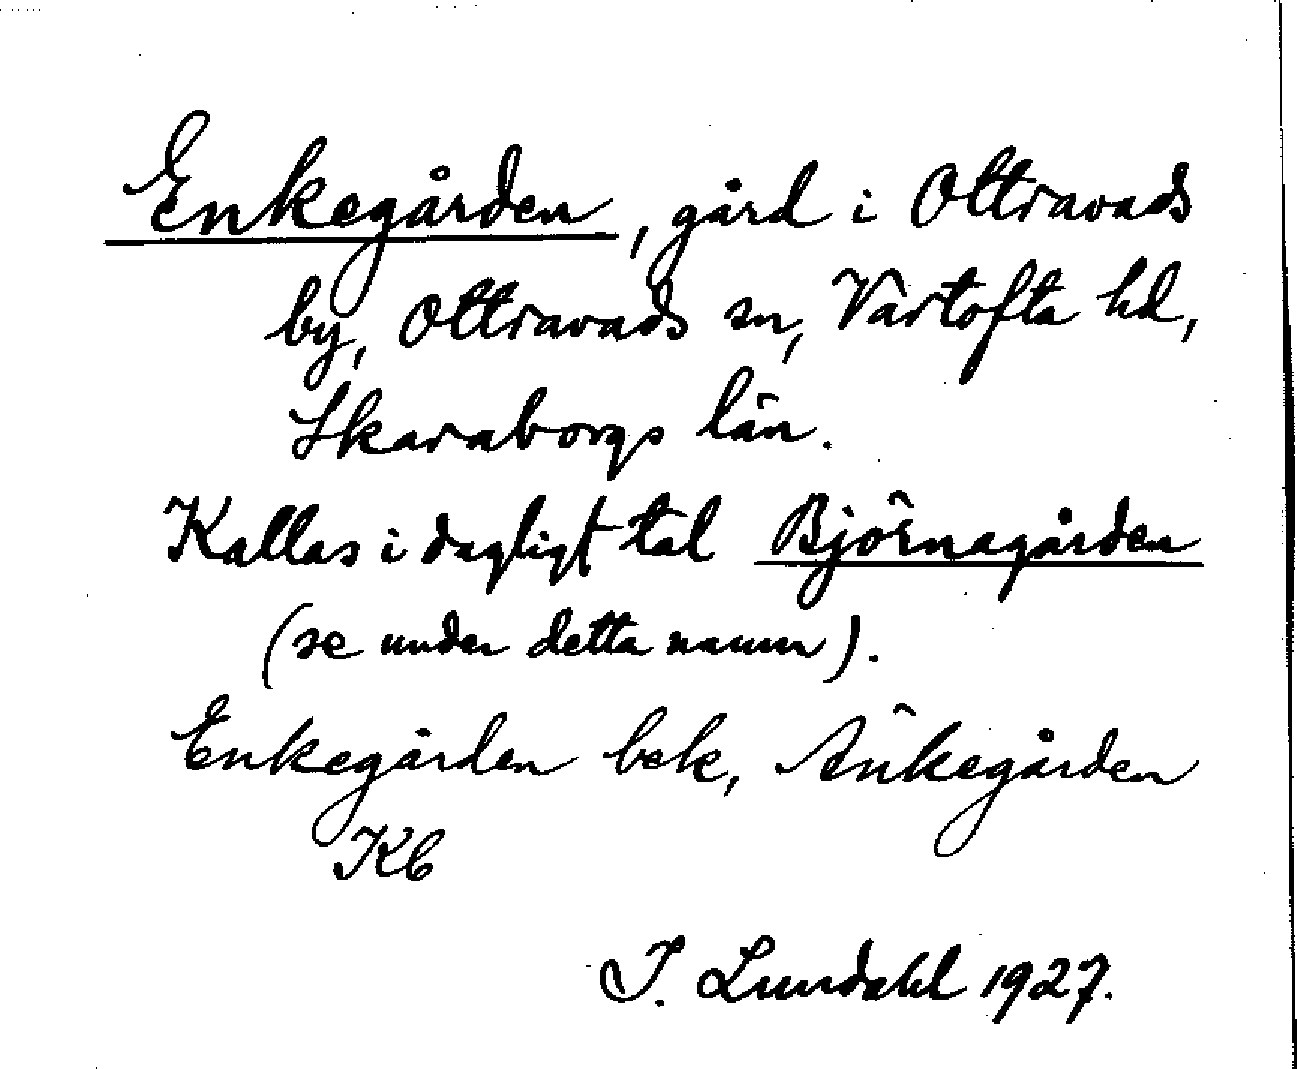 Enkegården, gård i Ottravads
by, Ottravads sn, Vartofta hd,
Skaraborgs län.
Kallas i dagligt tal Björnagården
(se under detta namn).
Enkegården bek, Änkegården
Kb
I. Lundahl 1927.